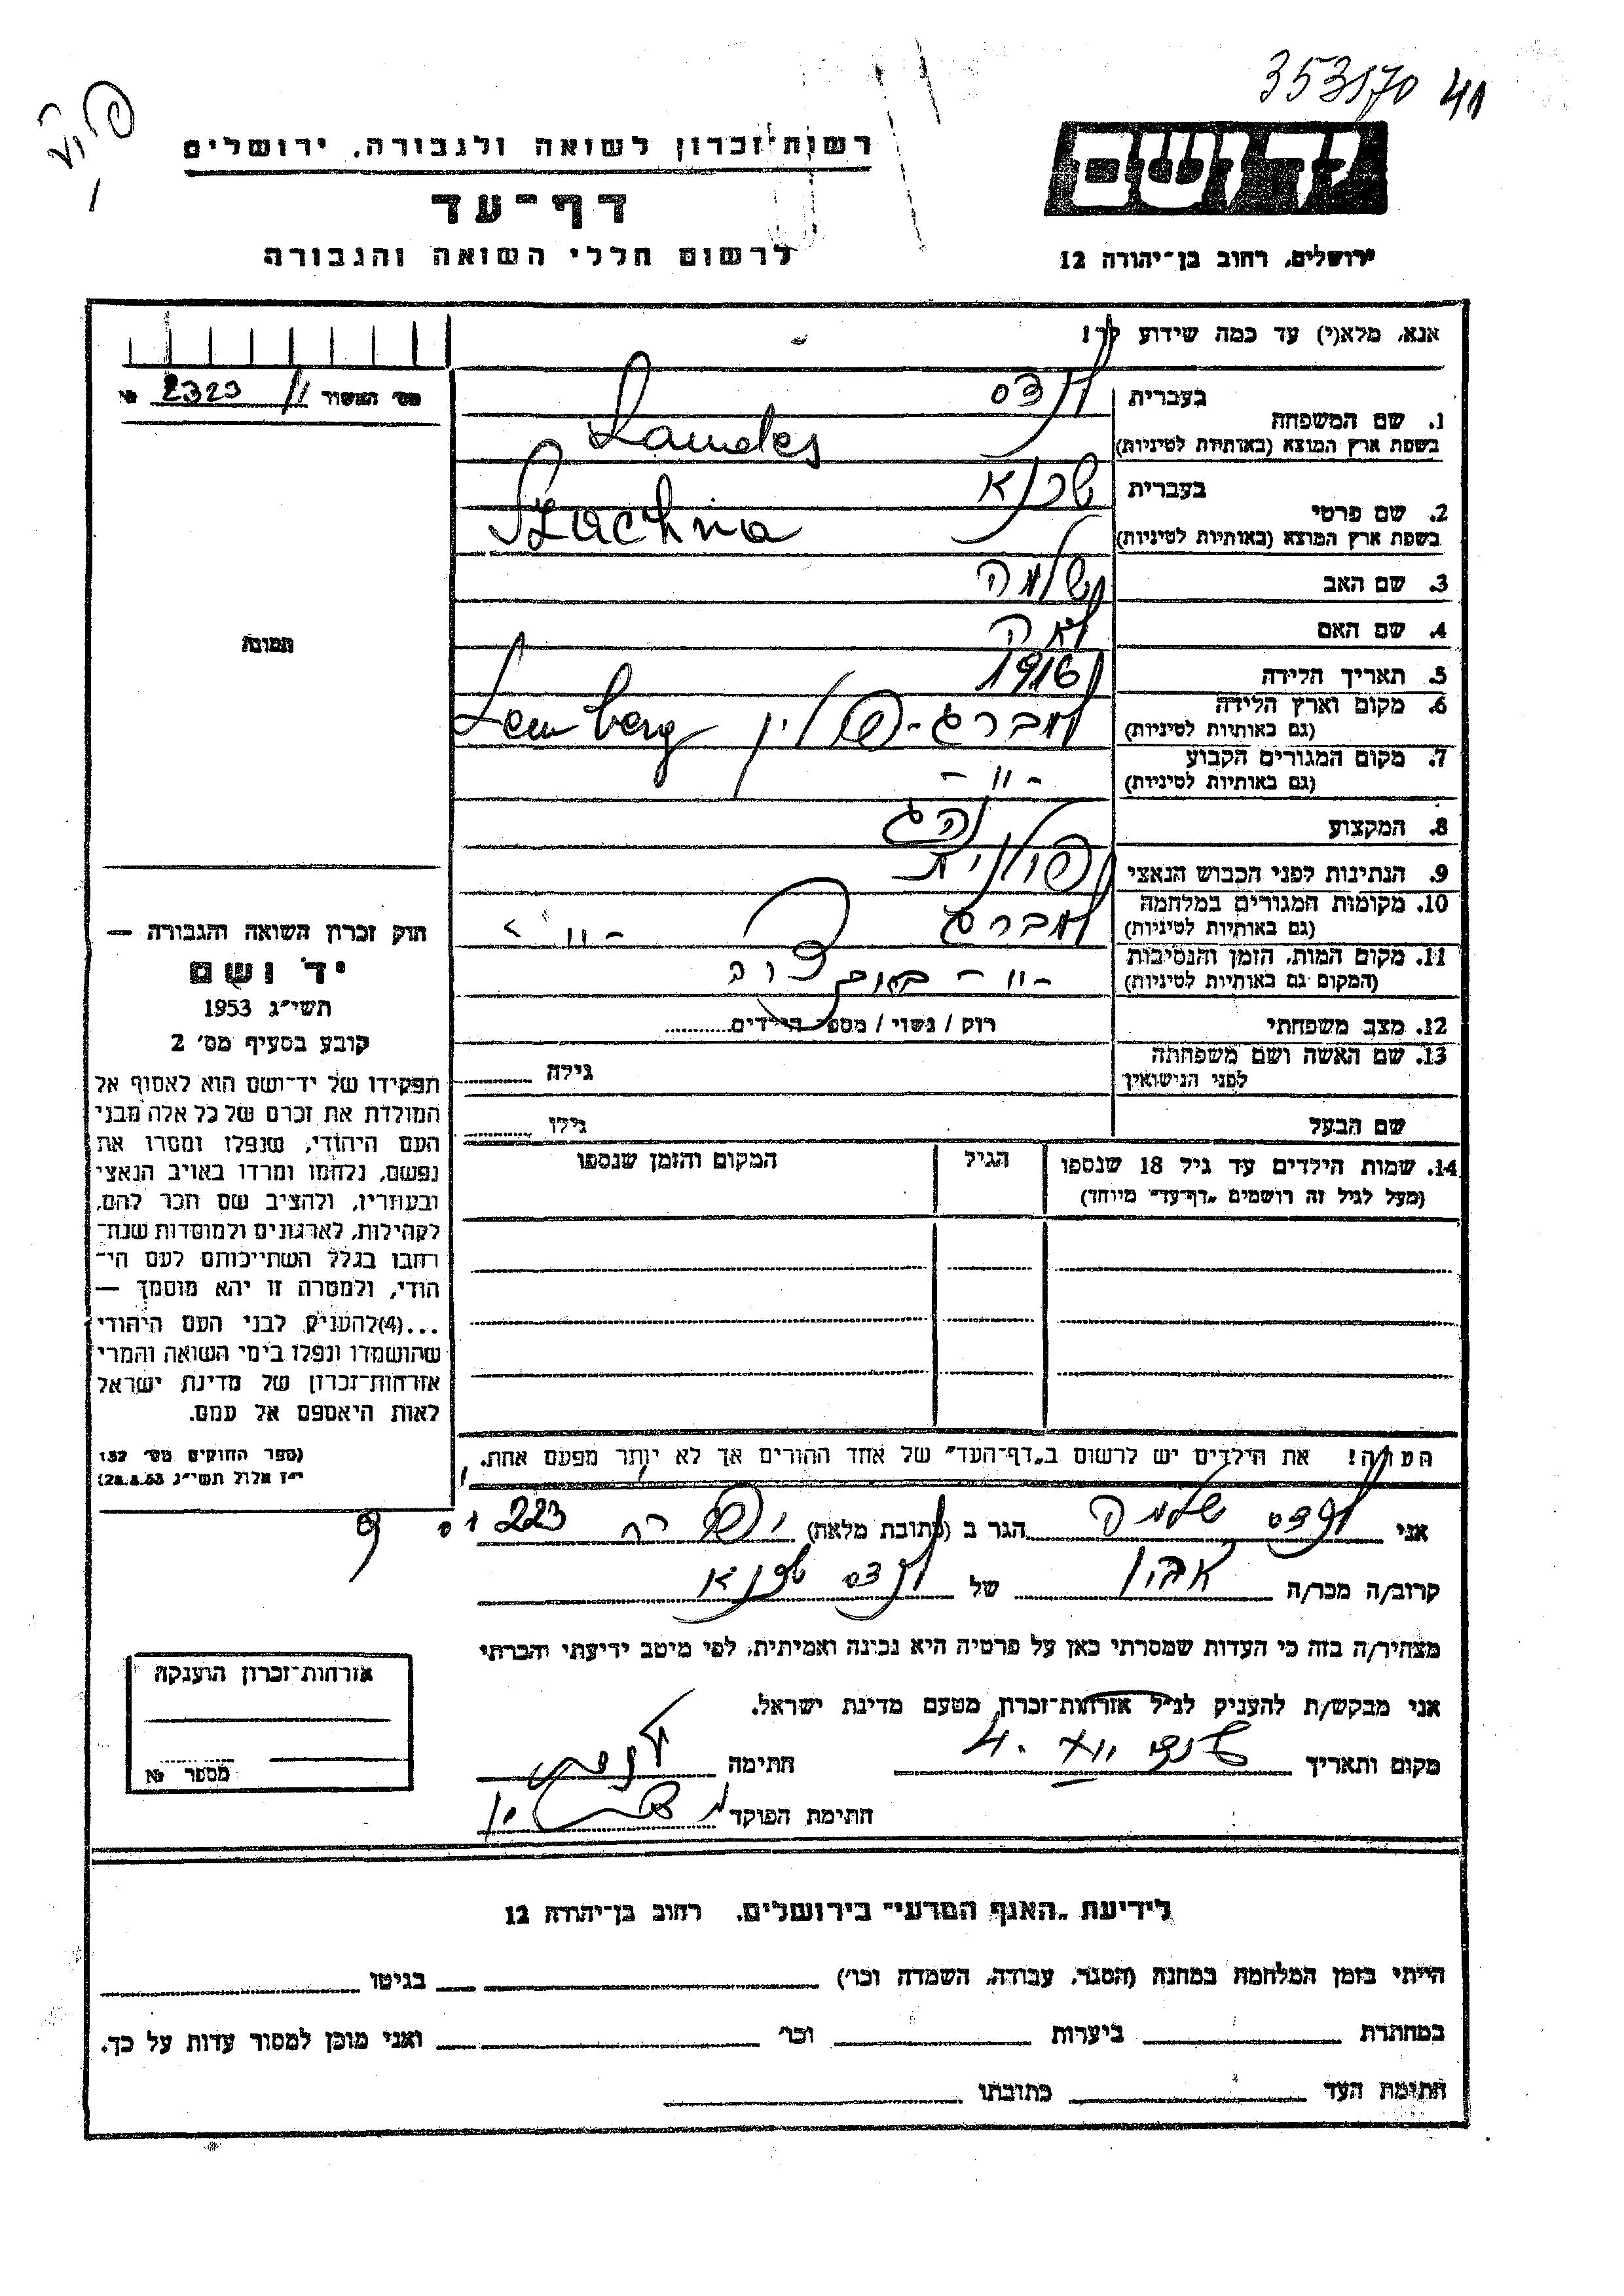 353170 41
רשות־זכרון לשואה ולגבורה, ירושלים
יד ושם
דף־עד
לרשום חללי השואה והגבורה
ירושלים, רחוב בן־יהודה 12
אנא, מלא(י) עד כמה שידוע לך!
מס' האשור 11/ 2323 №
1. שם המשפחה בעברית לנדס
בשפת ארץ המוצא (באותיות לטיניות) Landes
2. שם פרטי בעברית שכנא
בשפת ארץ המוצא (באותיות לטיניות) Szachna
3. שם האב שלמה
4. שם האם לאה
תמונה
5. תאריך הלידה 1916
6. מקום וארץ הלידה למברג - פולין Lemberg
(גם באותיות לטיניות)
7. מקום המגורים הקבוע - " -
(גם באותיות לטיניות)
8. המקצוע נהג
9. הנתינות לפני הכבוש הנאצי פולנית
10. מקומות המגורים במלחמה למברג - " -
(גם באותיות לטיניות)
11. מקום המות, הזמן והנסיבות - " -
(המקום גם באותיות לטיניות)
12. מצב משפחתי רוק / נשוי / מספר הילדים
13. שם האשה ושם משפחתה גילה
לפני הנישואין
שם הבעל גילו
14. שמות הילדים עד גיל 18 שנספו הגיל המקום והזמן שנספו
(מעל לגיל זה רושמים „דף־עד" מיוחד)
חוק זכרון השואה והגבורה —
יד ושם
תשי"ג 1953
קובע בסעיף מס' 2
תפקידו של יד־ושם הוא לאסוף אל
המולדת את זכרם של כל אלה מבני
העם היהודי, שנפלו ומסרו את
נפשם, נלחמו ומרדו באויב הנאצי
ובעוזריו, ולהציב שם וזכר להם,
לקהילות, לארגונים ולמוסדות שנח־
רבו בגלל השתייכותם לעם הי־
הודי, ולמטרה זו יהא מוסמך —
...(4)להעניק לבני העם היהודי
שהושמדו ונפלו בימי השואה והמרי
אזרחות־זכרון של מדינת ישראל
לאות היאספם אל עמם.
(ספר החוקים מס' 132
י"ז אלול תשי"ג 28.8.53)
הערה! את הילדים יש לרשום ב„דף־העד" של אחד ההורים אך לא יותר מפעם אחת.
אני לנדס שלמה הגר ב (כתובת מלאה) 223
קרוב/ה מכר/ה אביו של לנדס שכנא
מצהיר/ה בזה כי העדות שמסרתי כאן על פרטיה היא נכונה ואמיתית, לפי מיטב ידיעתי והכרתי
אני מבקש/ת להעניק לנ"ל אזרחות־זכרון מטעם מדינת ישראל.
מקום ותאריך חתימה
חתימת הפוקד
אזרחות־זכרון הוענקה
מספר №
לידיעת „האגף המדעי" בירושלים, רחוב בן־יהודה 12
הייתי בזמן המלחמה במחנה (הסגר, עבודה, השמדה וכו') בגיטו
במחתרת ביערות וכו' ואני מוכן למסור עדות על כך.
חתימת העד כתובתו